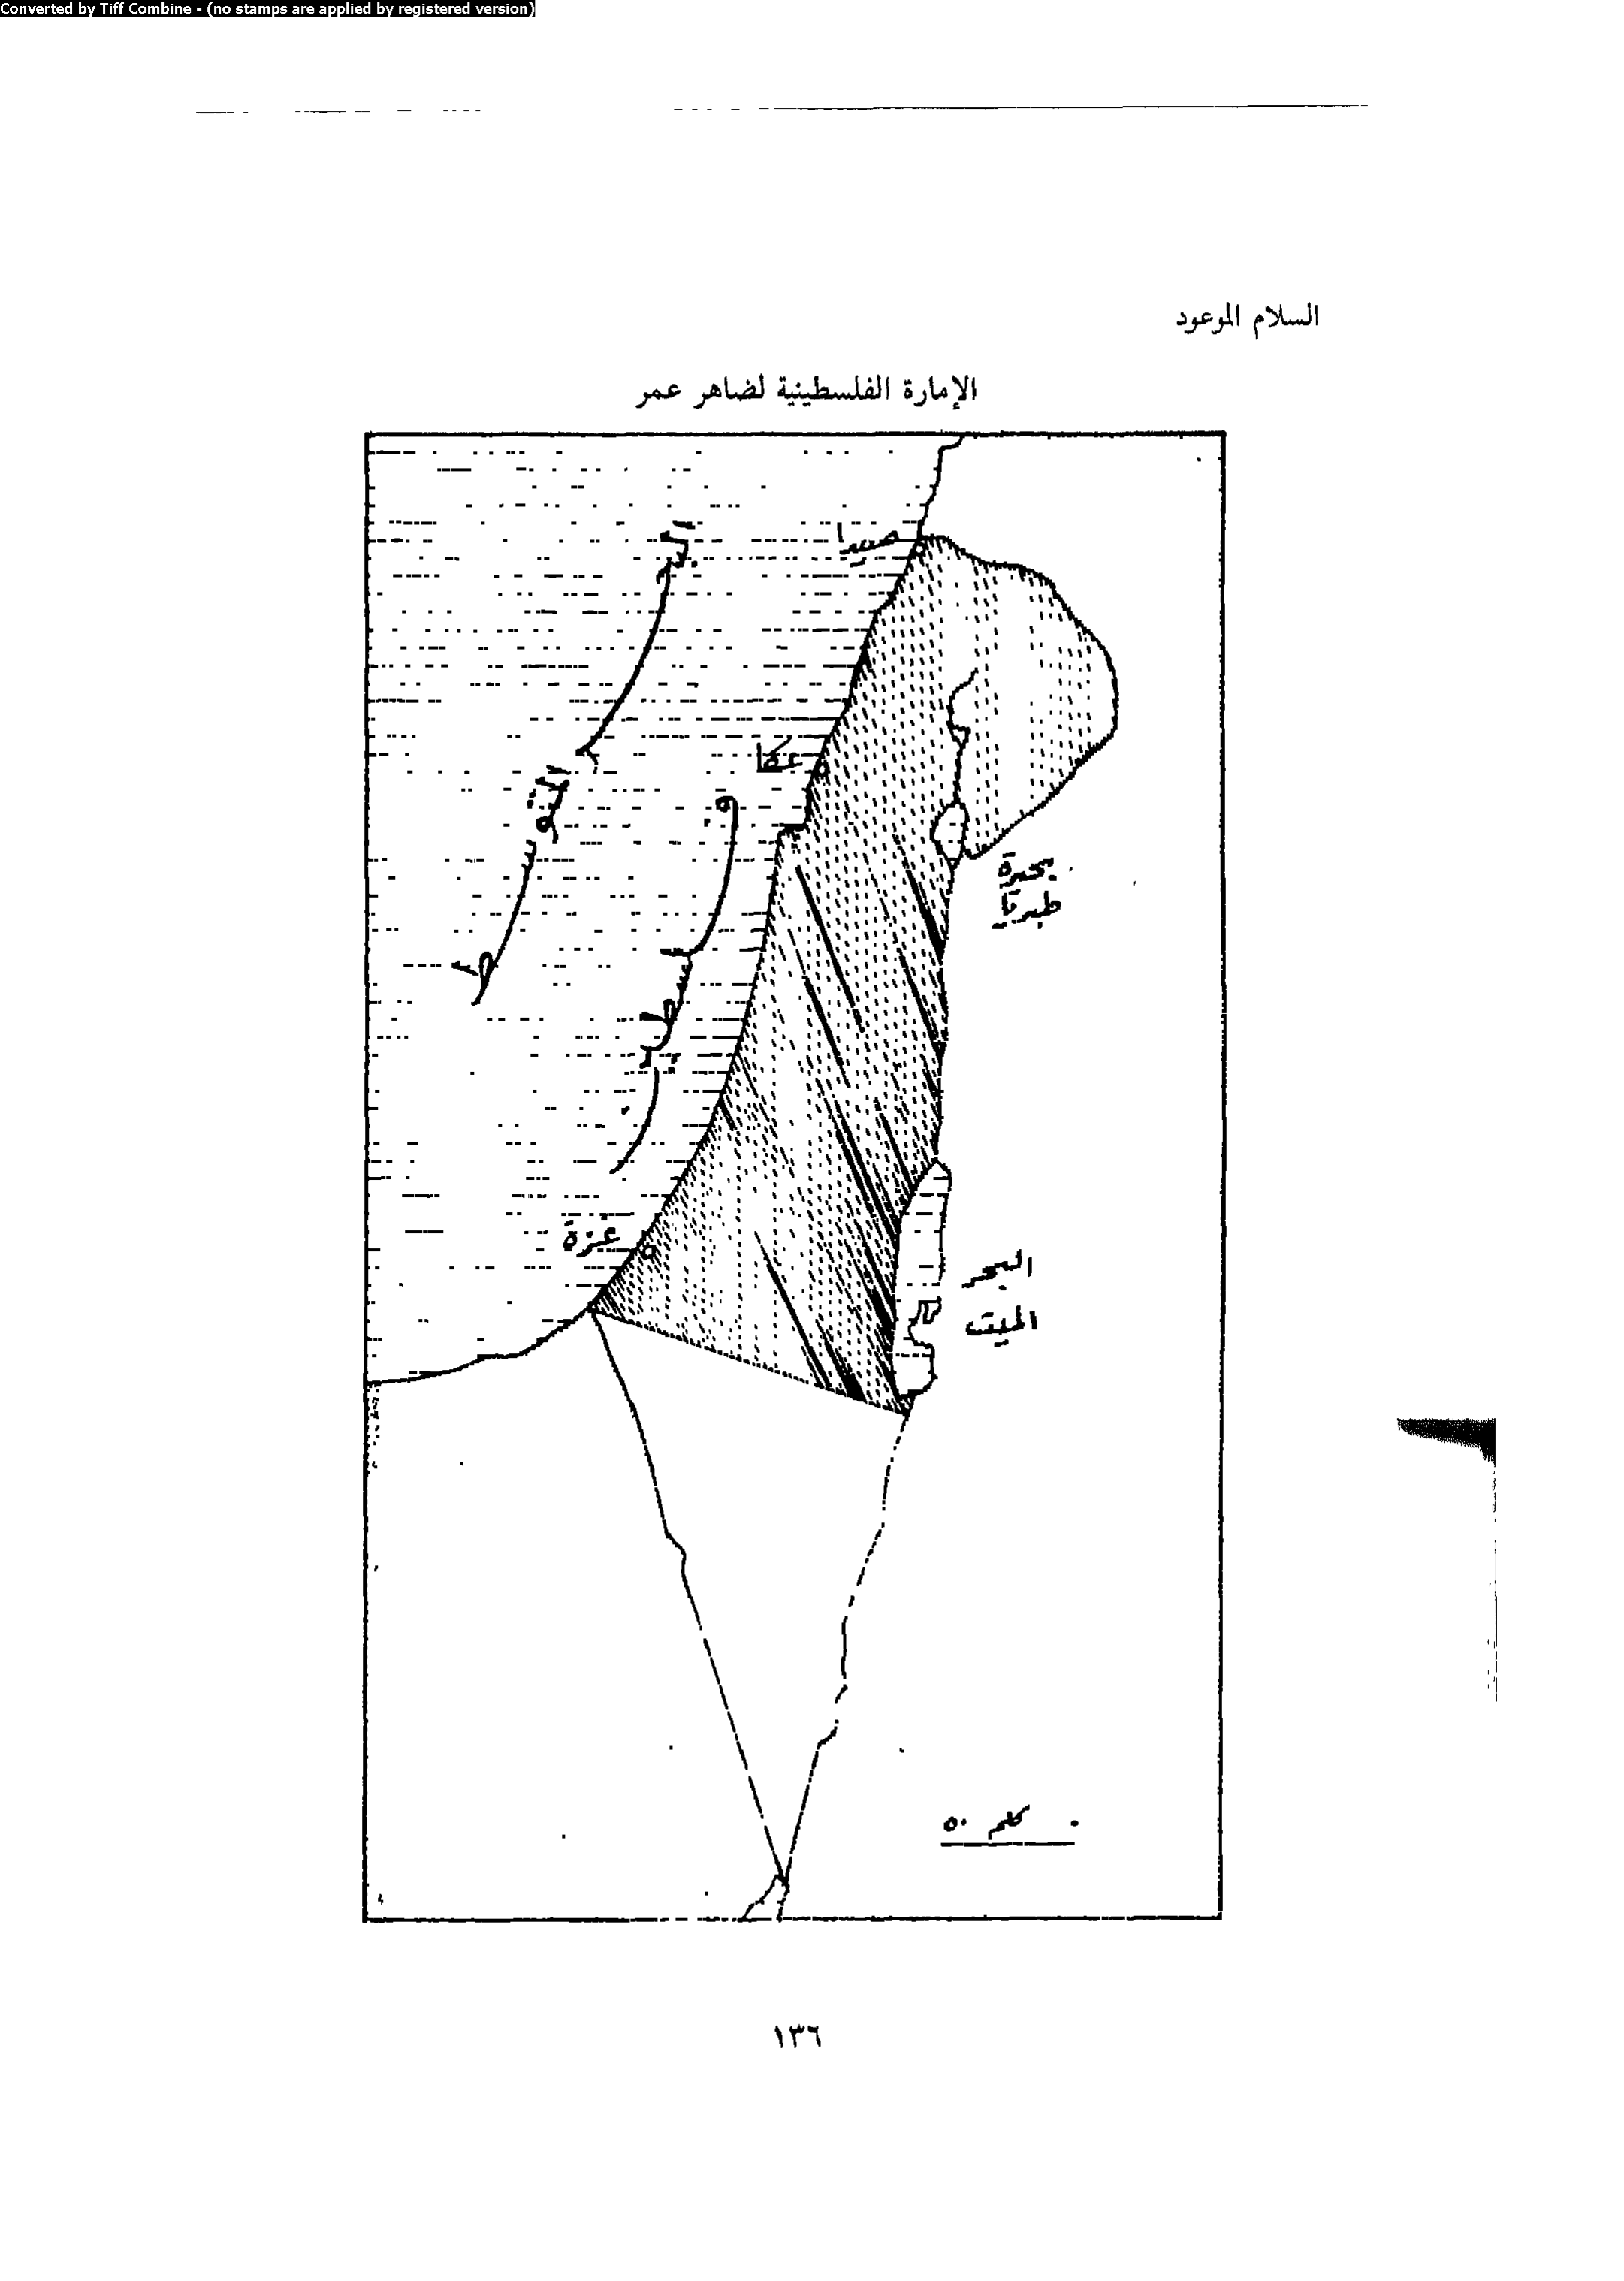 Converted by Tiff Combine - (no stamps are applied by registered version)
السلام الموعود
الإمارة الفلسطينية لضاهر عمر
صيدا
عكا
البحر المتوسط
فلسطين
بحيرة
طبريا
غزة
البحر
الميت
٥٠ كلم ٠
١٣٦